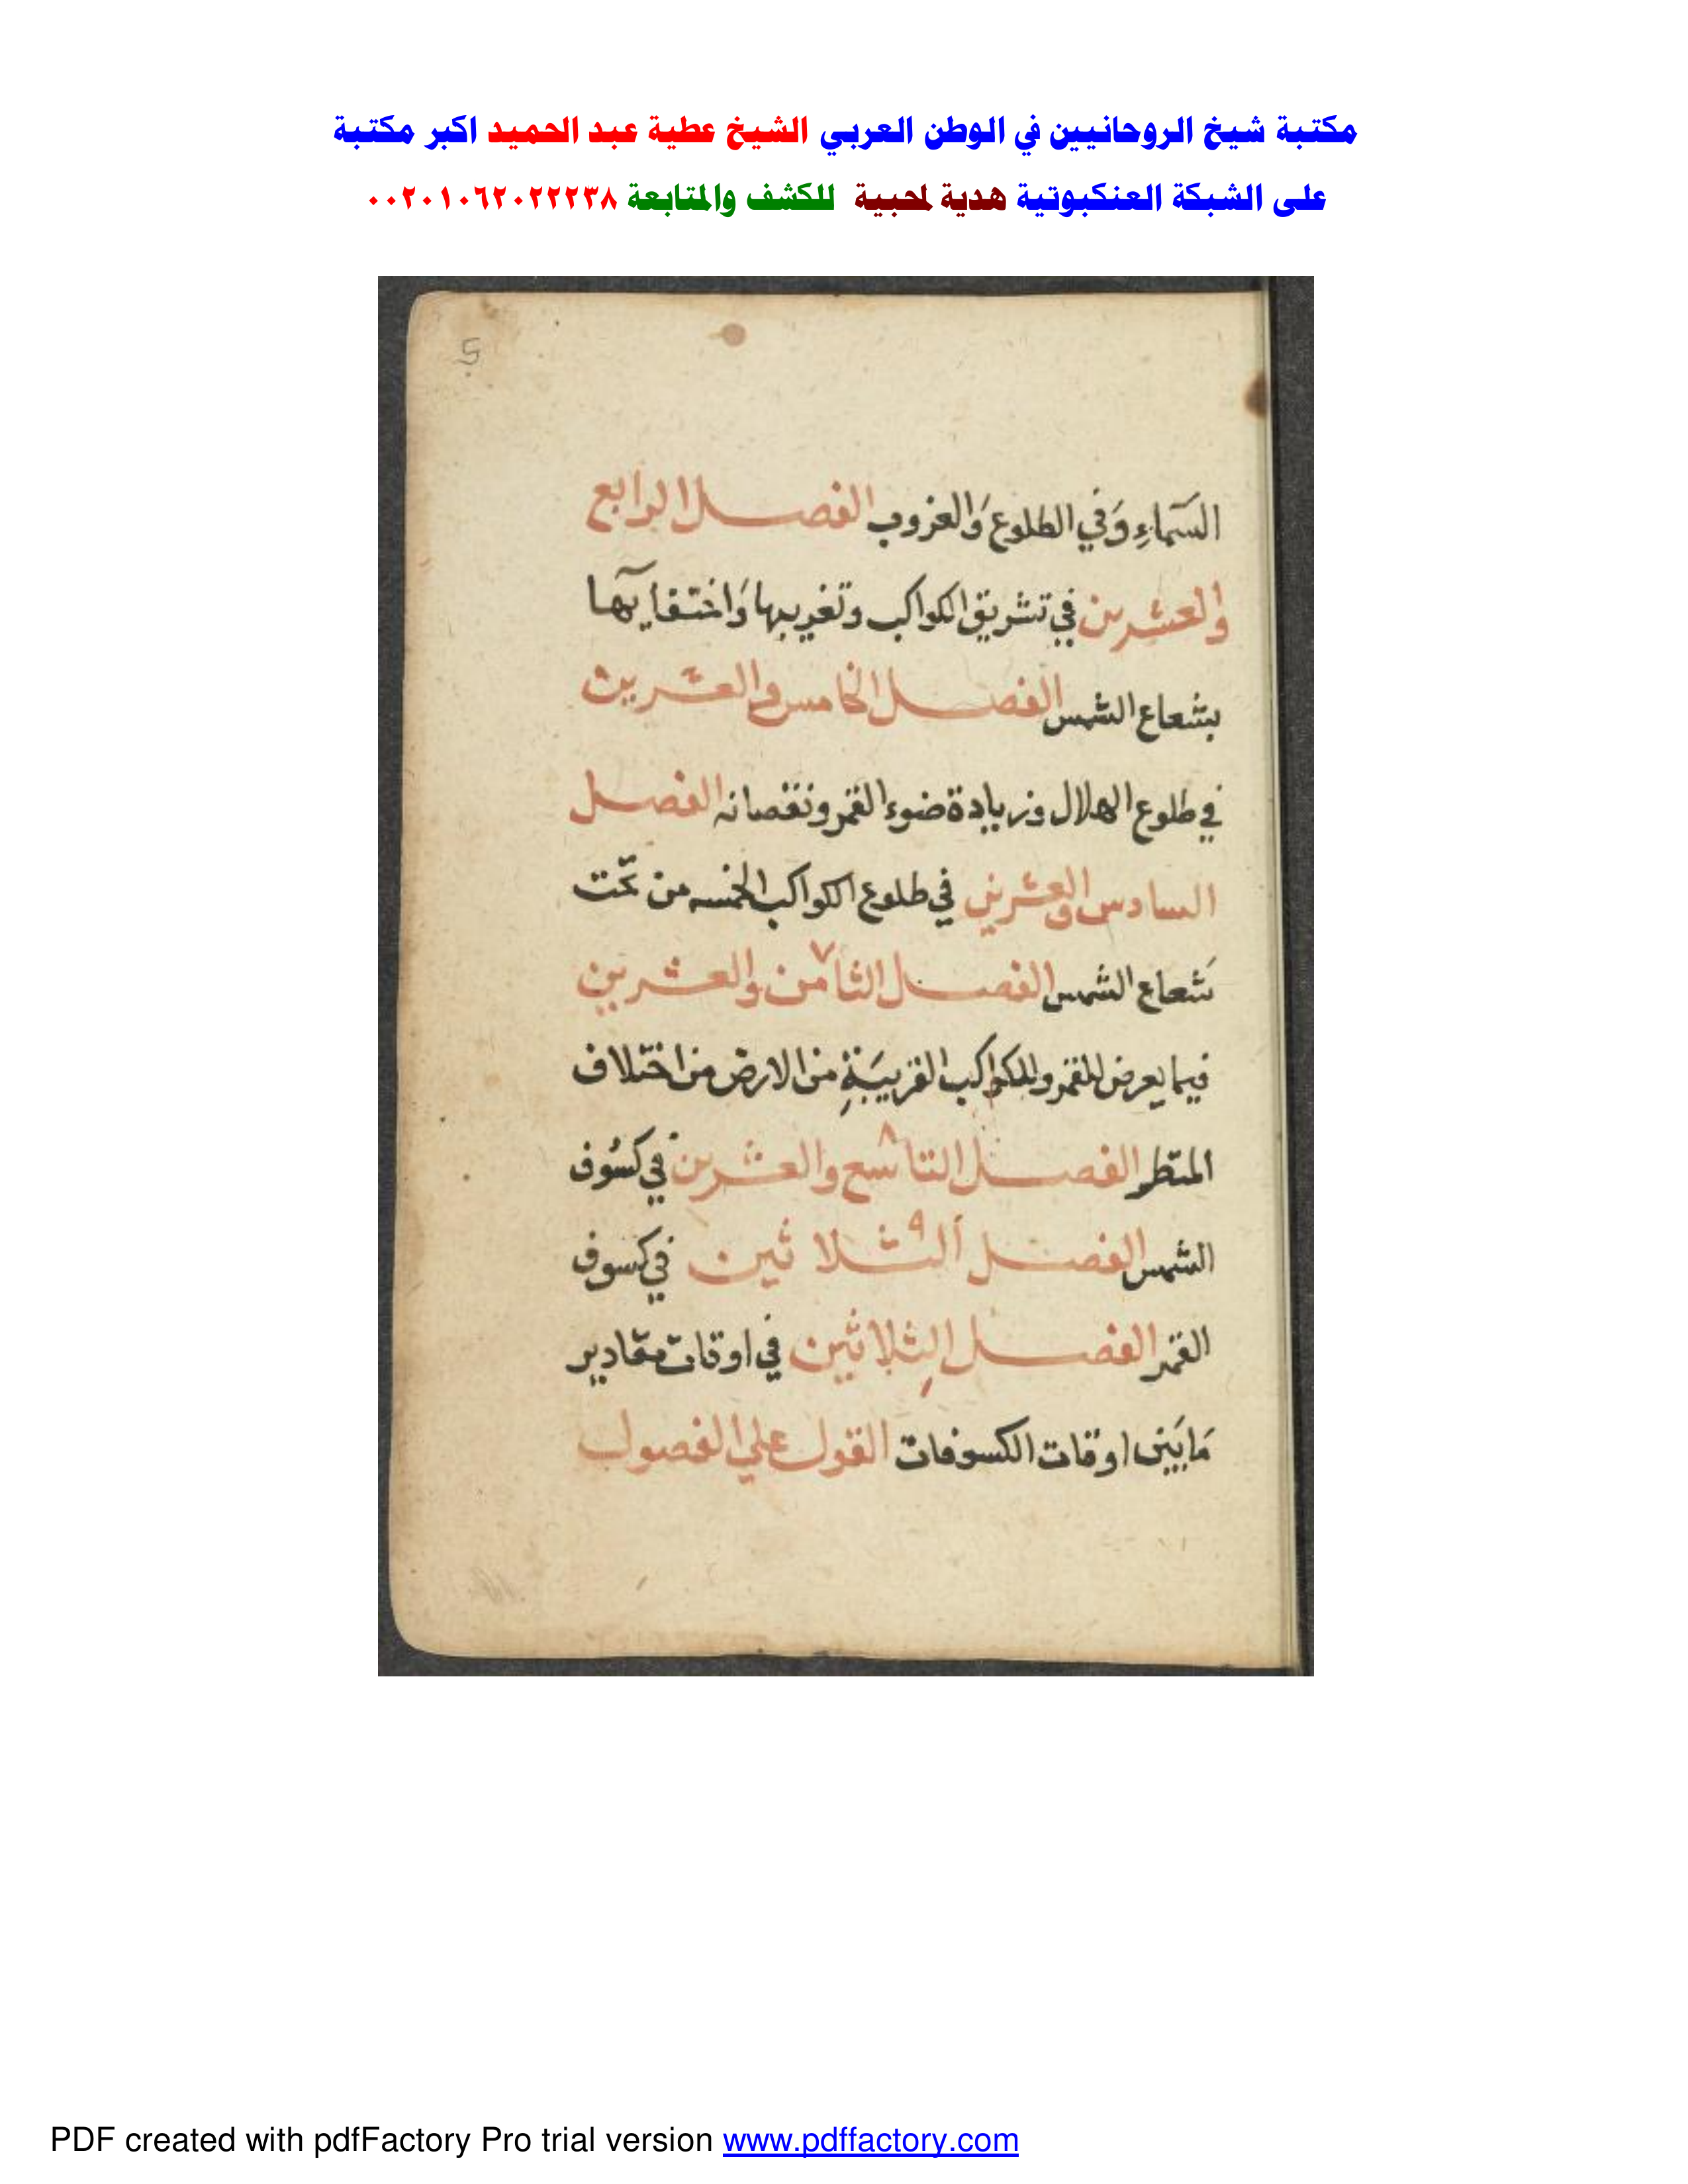 مكتبة شيخ الروحانيين في الوطن العربي الشيخ عطية عبد الحميد اكبر مكتبة
على الشبكة العنكبوتية هدية لمحبية للكشف والمتابعة ٠٠٢٠١٠٦٢٠٢٢٢٣٨
5
السَّماءِ وَفي الطلوع وَالغروب الفصل الرابع
والعشرين في تشريق الكواكب وتغريبها وَاختفايها
بشعاع الشمس الفصل الخامس والعشرين
في طلوع الهلال وزيادة ضوء القمر ونقصانه الفصل
السادس والعشرين في طلوع الكواكب الخمسه من تحت
شعاع الشمس الفصل الثامن والعشرين ٧
فيما يعرض للقمر وللكواكب القريبَةِ من الارض من اختلاف
المنظر الفصل التاسع والعشرين ٨ في كسُوف
الشمس الفصل الثلاثين ٩ في كسوف
القمر الفصل الثلاثين في اوقات مقادير
مَابَين اوقات الكسوفات القول علي الفصول
PDF created with pdfFactory Pro trial version www.pdffactory.com